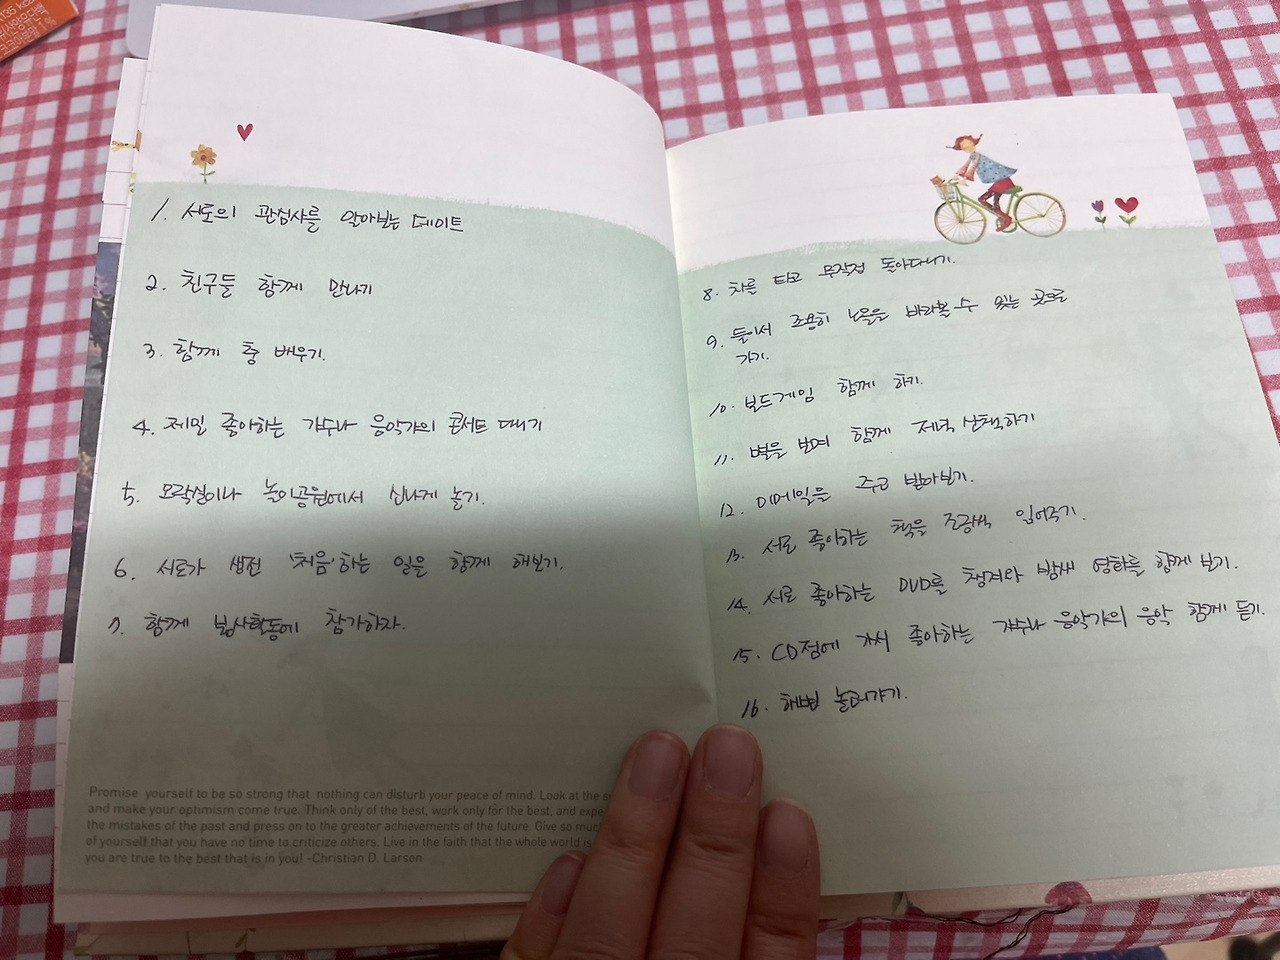 135 kcal
1. 서로의 관심사를 알아보는 데이트
2. 친구들 함께 만나기
3. 함께 춤 배우기.
4. 제일 좋아하는 가수나 음악가의 콘서트 대기
5. 오락실이나 놀이공원에서 신나게 놀기.
6. 서로가 생전 '처음'하는 일을 함께 해보기.
7. 함께 봉사활동에 참가하자.
Promise yourself to be so strong that nothing can disturb your peace of mind. Look at the
and make your optimism come true. Think only of the best, work only for the best, and
the mistakes of the past and press on to the greater achievements of the future. Give so
of yourself that you have no time to criticize others. Live in the faith that the whole world is
you are true to the best that is in you! -Christian D. Larson
8. 차를 타고 무작정 돌아다니기.
9. 둘이서 조용히 노을을 바라볼 수 있는 곳으로
가기.
10. 보드게임 함께 하기.
11. 별을 보며 함께 저녁 산책하기
12. 이메일을 주고 받아보기.
13. 서로 좋아하는 책을 조금씩 읽어주기.
14. 서로 좋아하는 DVD를 챙겨와 밤새 영화를 함께 보기.
15. CD점에 가서 좋아하는 가수나 음악가의 음악 함께 듣기.
16. 해변 놀러가기.